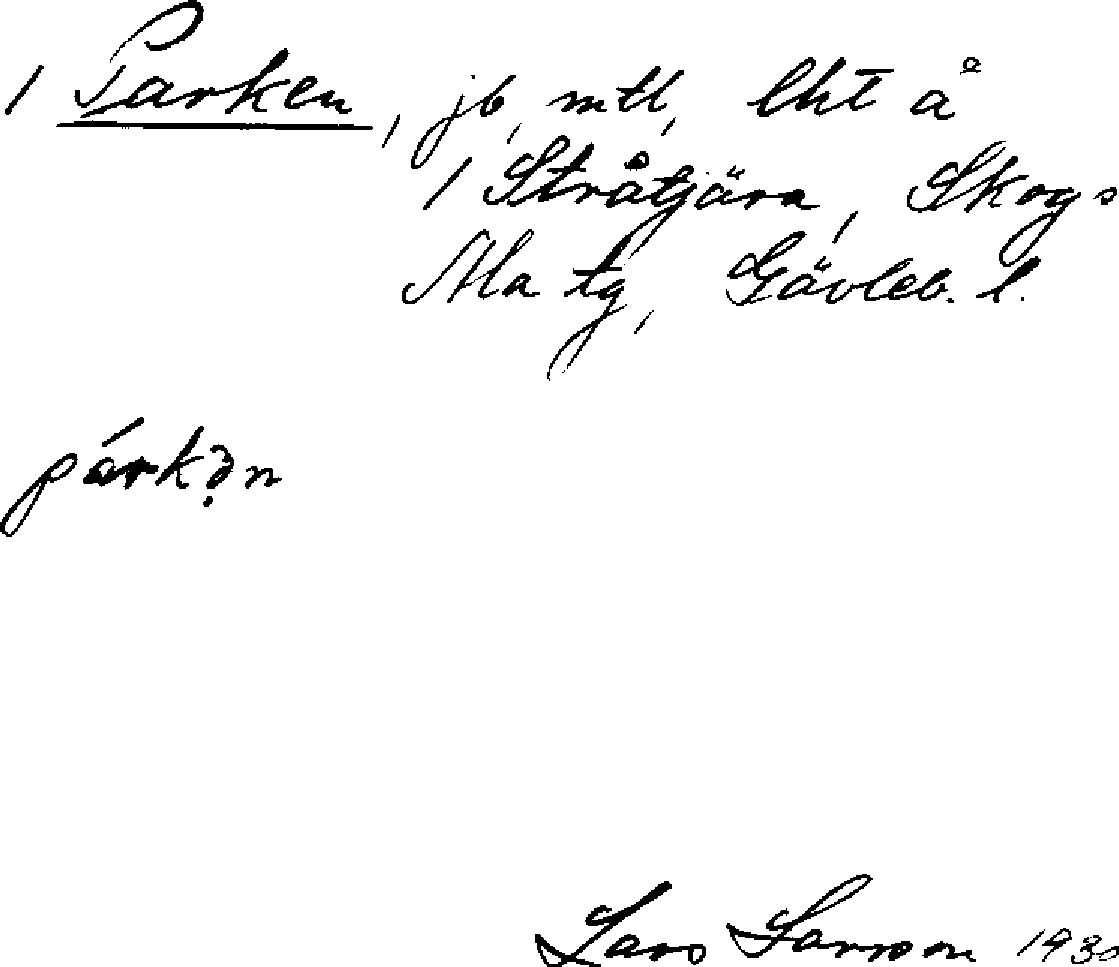 1 Parken, jb, mtl, lht å
1 Stråtjära, Skogs
Ala tg, Gävleb. l.
párkən
Lars Larsson 1930